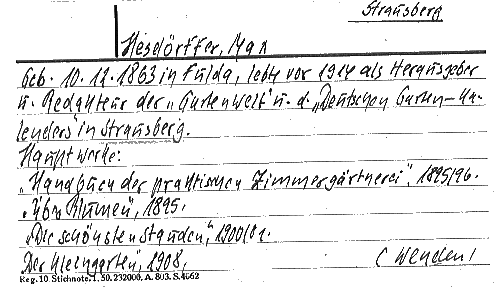 Strausberg
Hesdörffer, Max
Geb. 10.12.1863 in Fulda, lebte vor 1914 als Herausgeber
u. Redakteur der „Gartenwelt" u. d. „Deutschen Garten-Ka-
lenders" in Strausberg.
Hauptwerke:
„Handbuch der praktischen Zimmergärtnerei", 1895/96.
„Über Blumen", 1895.
„Die schönsten Stauden", 1900/01.
Der Kleingarten", 1908,
(Wenden)
Reg. 10 Stichnote. 1. 50. 232000. A. 803. S. 4662